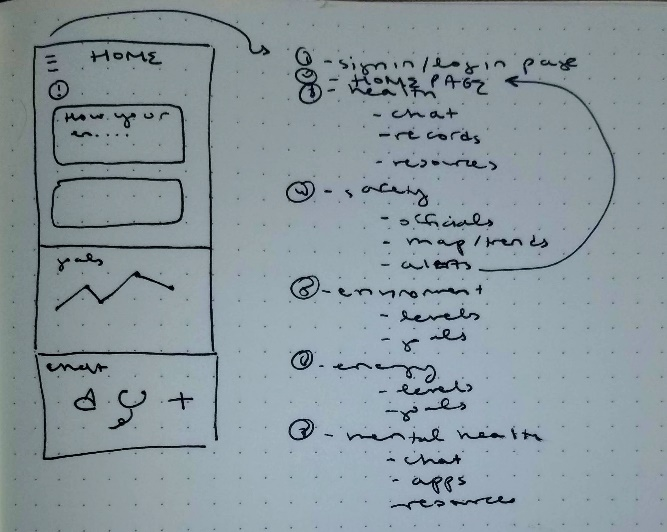 HOME
!
How your
en....
goals
chat
① - signin/login page
② - HOME PAGE
③ - health
- chat
- records
- resources
④ - safety
- officials
- map/trends
- alerts
⑤ - enviroment
- levels
- goals
⑥ - energy
- levels
- goals
⑦ - mental health
- chat
- apps
- resources